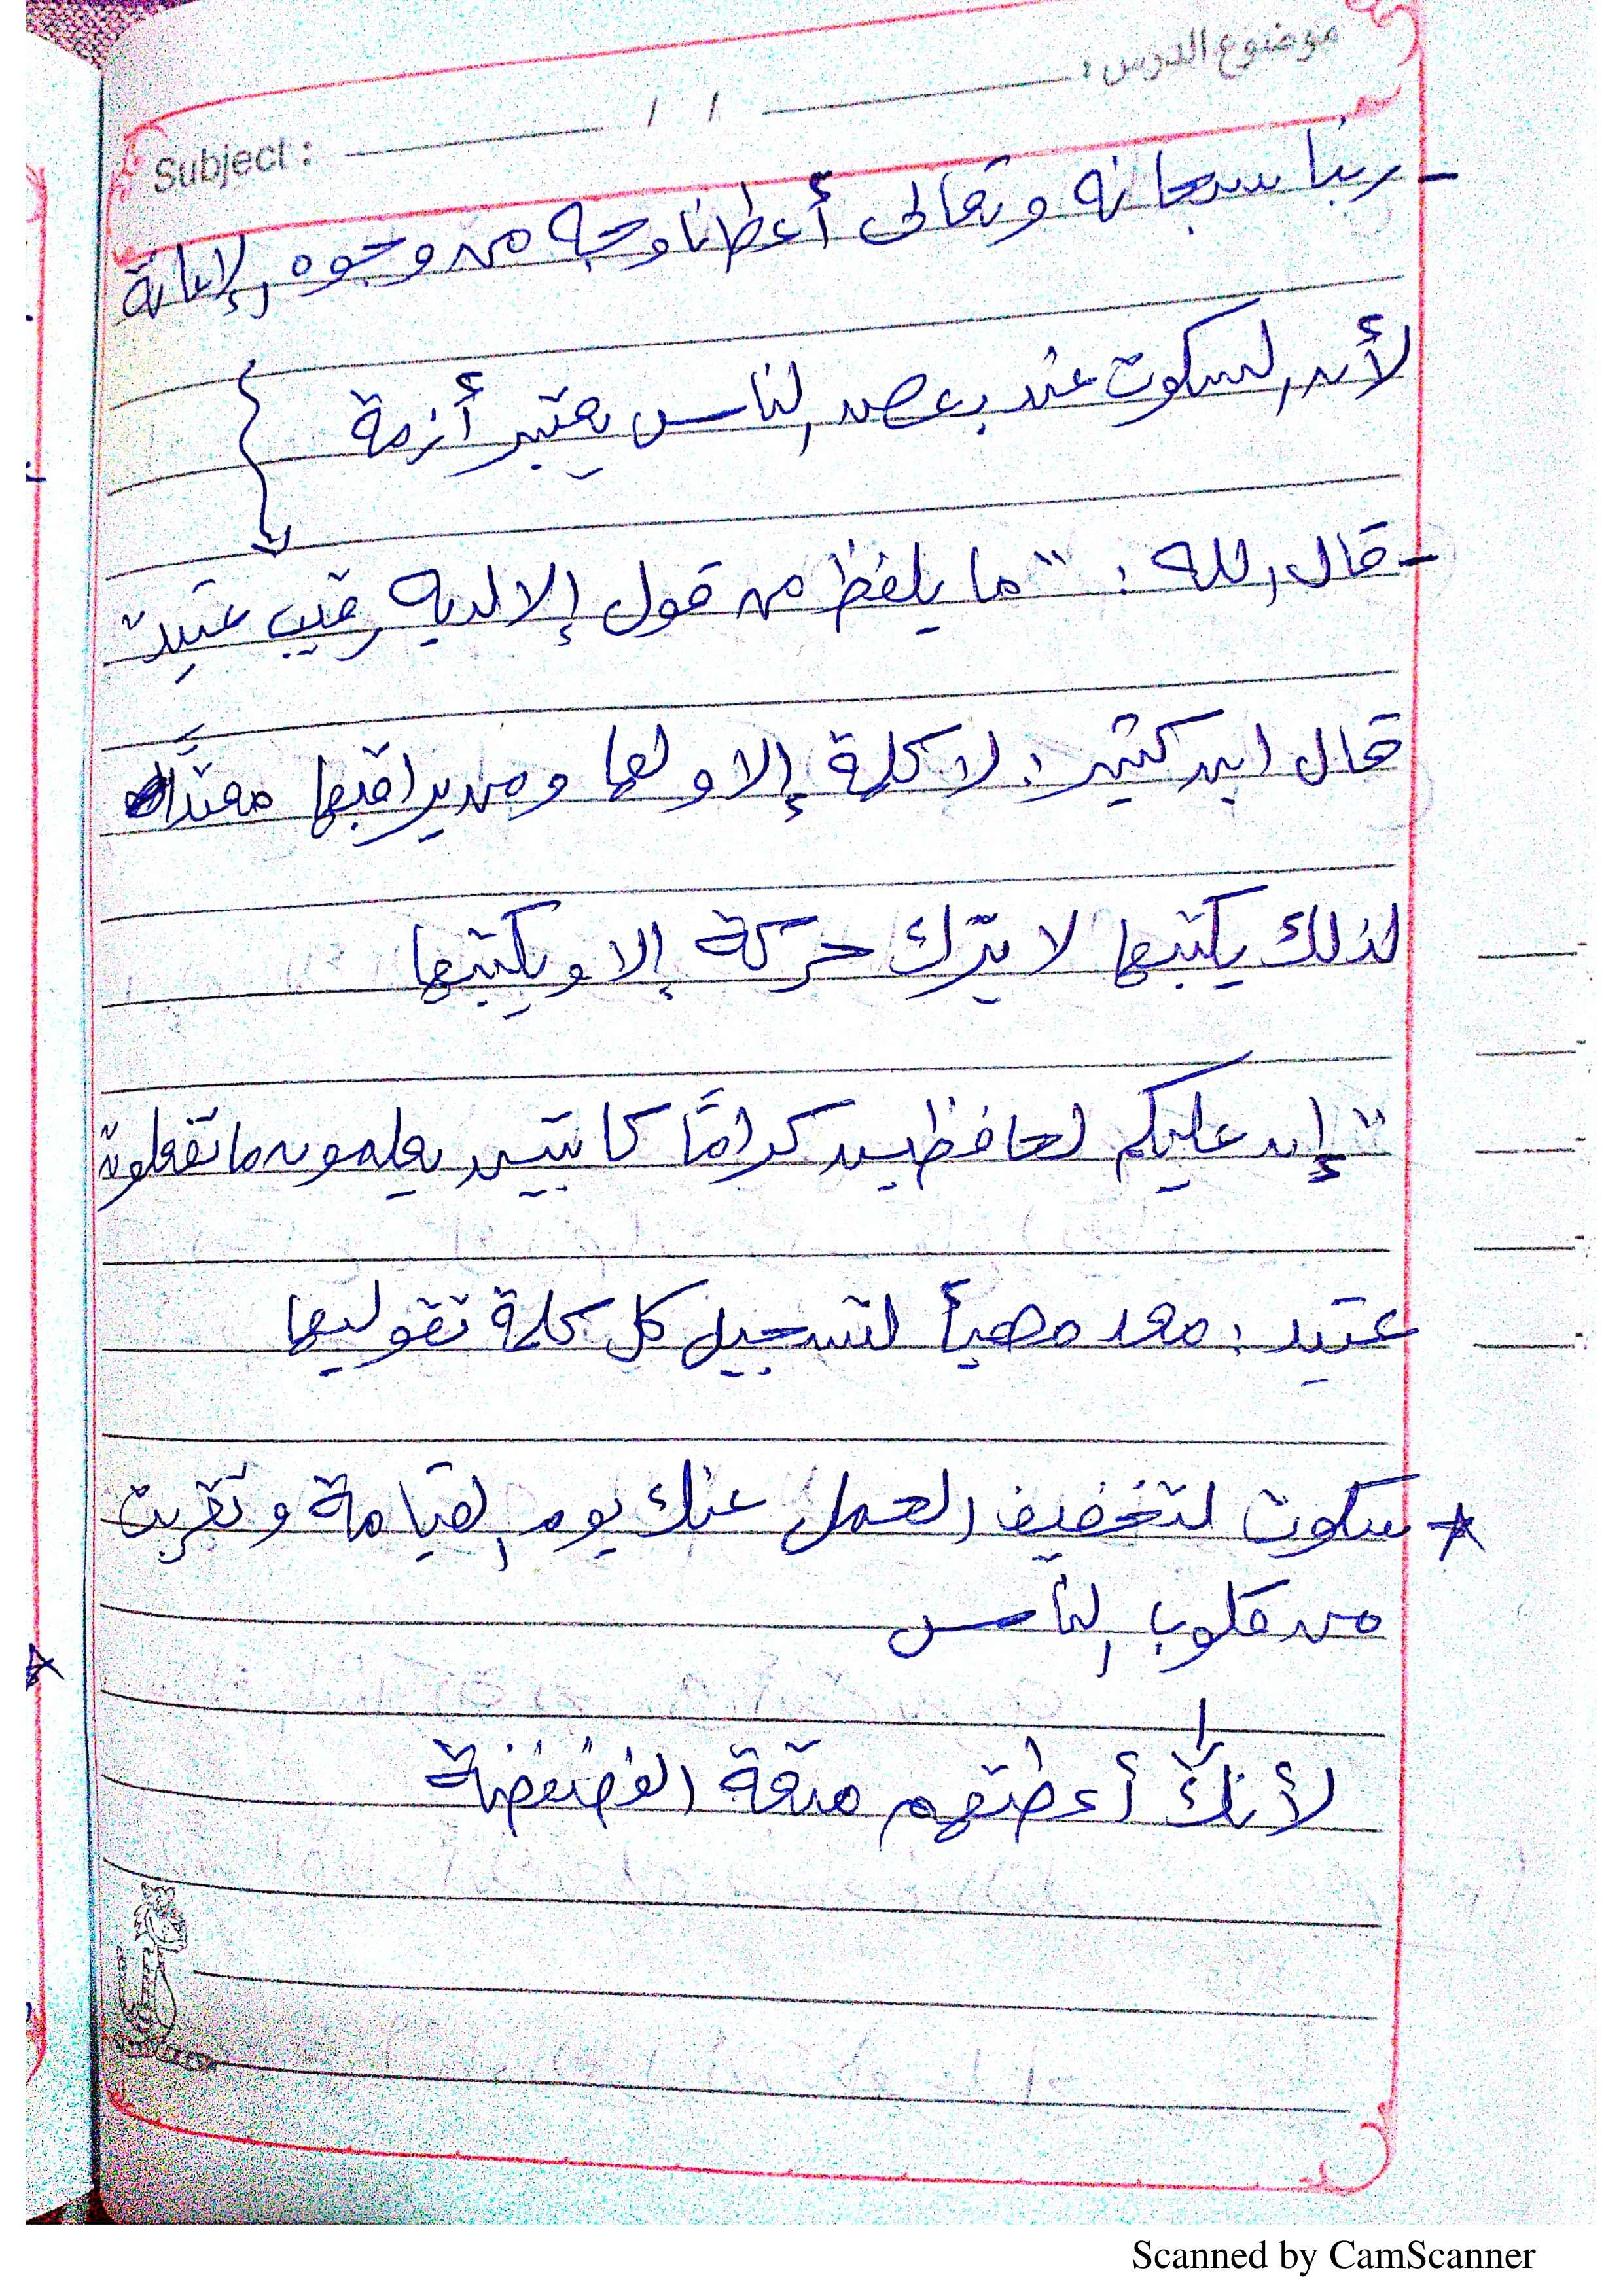 موضوع الدرس :
/ /
Subject :
- ربنا سبحانه وتعالى أعطانا وجه من وجوه الإعانة
لأن السكوت عند بعض الناس يعتبر أزمة
- قال الله : " ما يلفظ من قول إلا لديه رقيب عتيد "
قال ابن كثير : لا كلمة إلا ولها ومن يراقبها معتدًّا
لذلك يكتبها لا يترك حركة إلا ويكتبها
" إن عليكم لحافظين كرامًا كاتبين يعلمون ما تفعلون
عتيد : معد مهيأ لتسجيل كل كلمة تقوليها
* سكوت لتخفيف العمل عنك يوم القيامة وتقربت
من قلوب الناس
لأنك أعطتهم متعة الفضفضة
Scanned by CamScanner